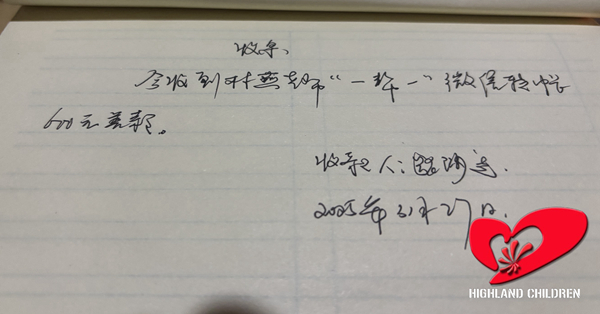 收条、
今收到燕老师“一帮一”微信转帐
600元善款。
收款人:
2025年3月27日.
HIGHLAND CHILDREN